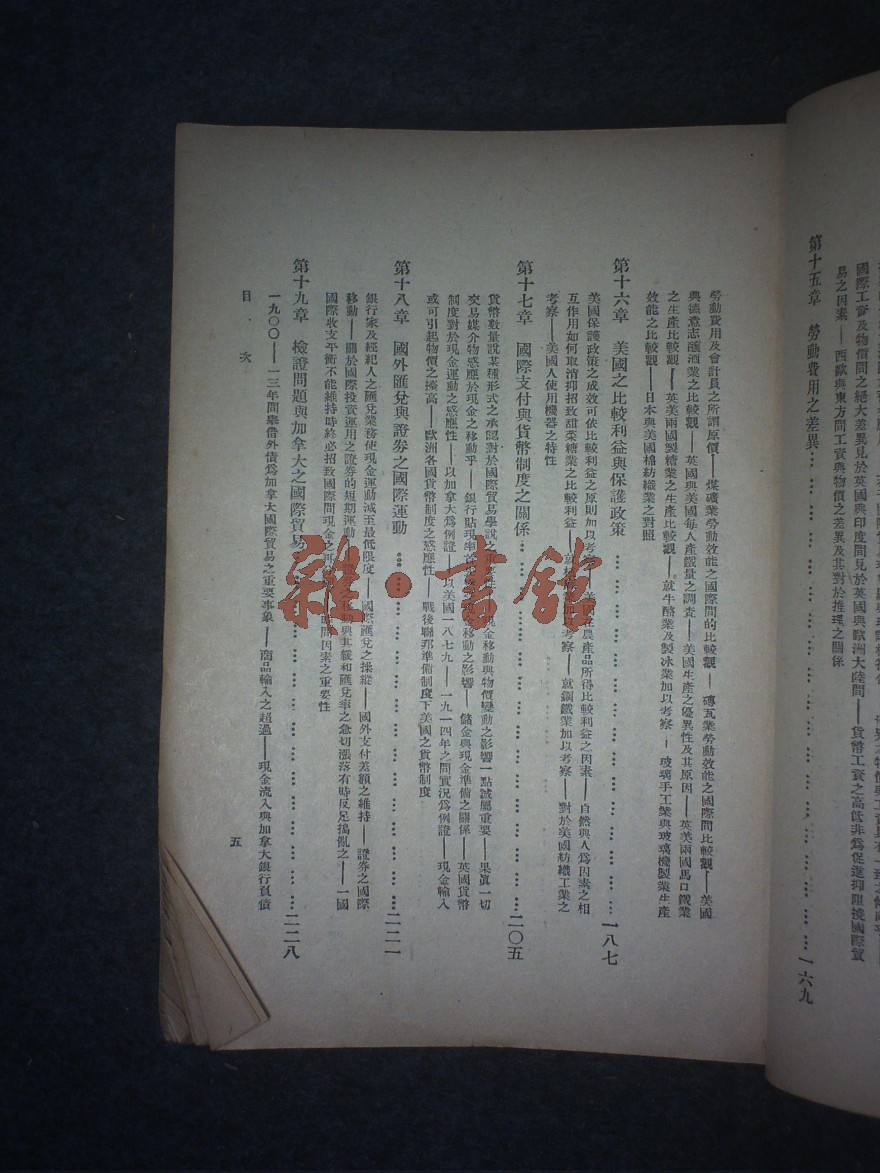 國際工資及物價間之絕大差異見於英國與印度間見於英國與歐洲大陸間——貨幣工資之高低非爲促進抑阻撓國際貿
易之因素——西歐與東方間工資與物價之差異及其對於推理之關係
第十五章 勞動費用之差異………一六九
勞動費用及會計員之所謂原價——煤礦業勞動效能之國際間的比較觀——磚瓦業勞動效能之國際間比較觀——美國
與德意志釀酒業之比較觀——英國與美國每人產鐵量之調查——美國生產之優異性及其原因——英美兩國馬口鐵業
之生產比較觀——英美兩國製糖業之生產比較觀——就牛酪業及製冰業加以考察——玻璃手工業與玻璃機製業生產
效能之比較觀——日本與美國棉紡織業之對照
第十六章 美國之比較利益與保護政策………一八七
美國保護政策之成效可依比較利益之原則加以考 農產品所得比較利益之因素——自然與人爲因素之相
互作用如何取消抑招致甜菜糖業之比較利益—— 加以考察——就鋼鐵業加以考察——對於美國紡織工業之
考察——美國人使用機器之特性
第十七章 國際支付與貨幣制度之關係………二〇五
貨幣數量說某種形式之承認對於國際貿易學說之 現金移動與物價變動之影響一點誠屬重要——果眞一切
交易媒介物感應於現金之移動乎——銀行貼現率 移動之影響——儲金與現金準備之關係——英國貨幣
制度對於現金運動之感應性——以加拿大爲例證 以美國一八七九——一九一四年之間實況爲例證——現金輸入
或可引起物價之擡高——歐洲各國貨幣制度之感應性——戰後聯邦準備制度下美國之貨幣制度
第十八章 國外匯兌與證券之國際運動………二二一
銀行家及經紀人之匯兌業務使現金運動減至最低限度——國際匯兌之操縱——國外支付差額之維持——證券之國際
移動——關於國際投資運用之證券的短期運動 移動與其緩和匯兌率之急切漲落有時反足搗亂之——一國
國際收支平衡不能維持時終必招致國際間現金之 時間因素之重要性
第十九章 檢證問題與加拿大之國際貿易………二二八
一九〇〇——一三年間舉借外債爲加拿大國際貿易之重要事象——商品輸入之超過——現金流入與加拿大銀行負債
目次
五
雜·書館